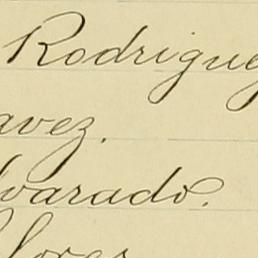 Rodrigue
avez.
lvarado.
lores